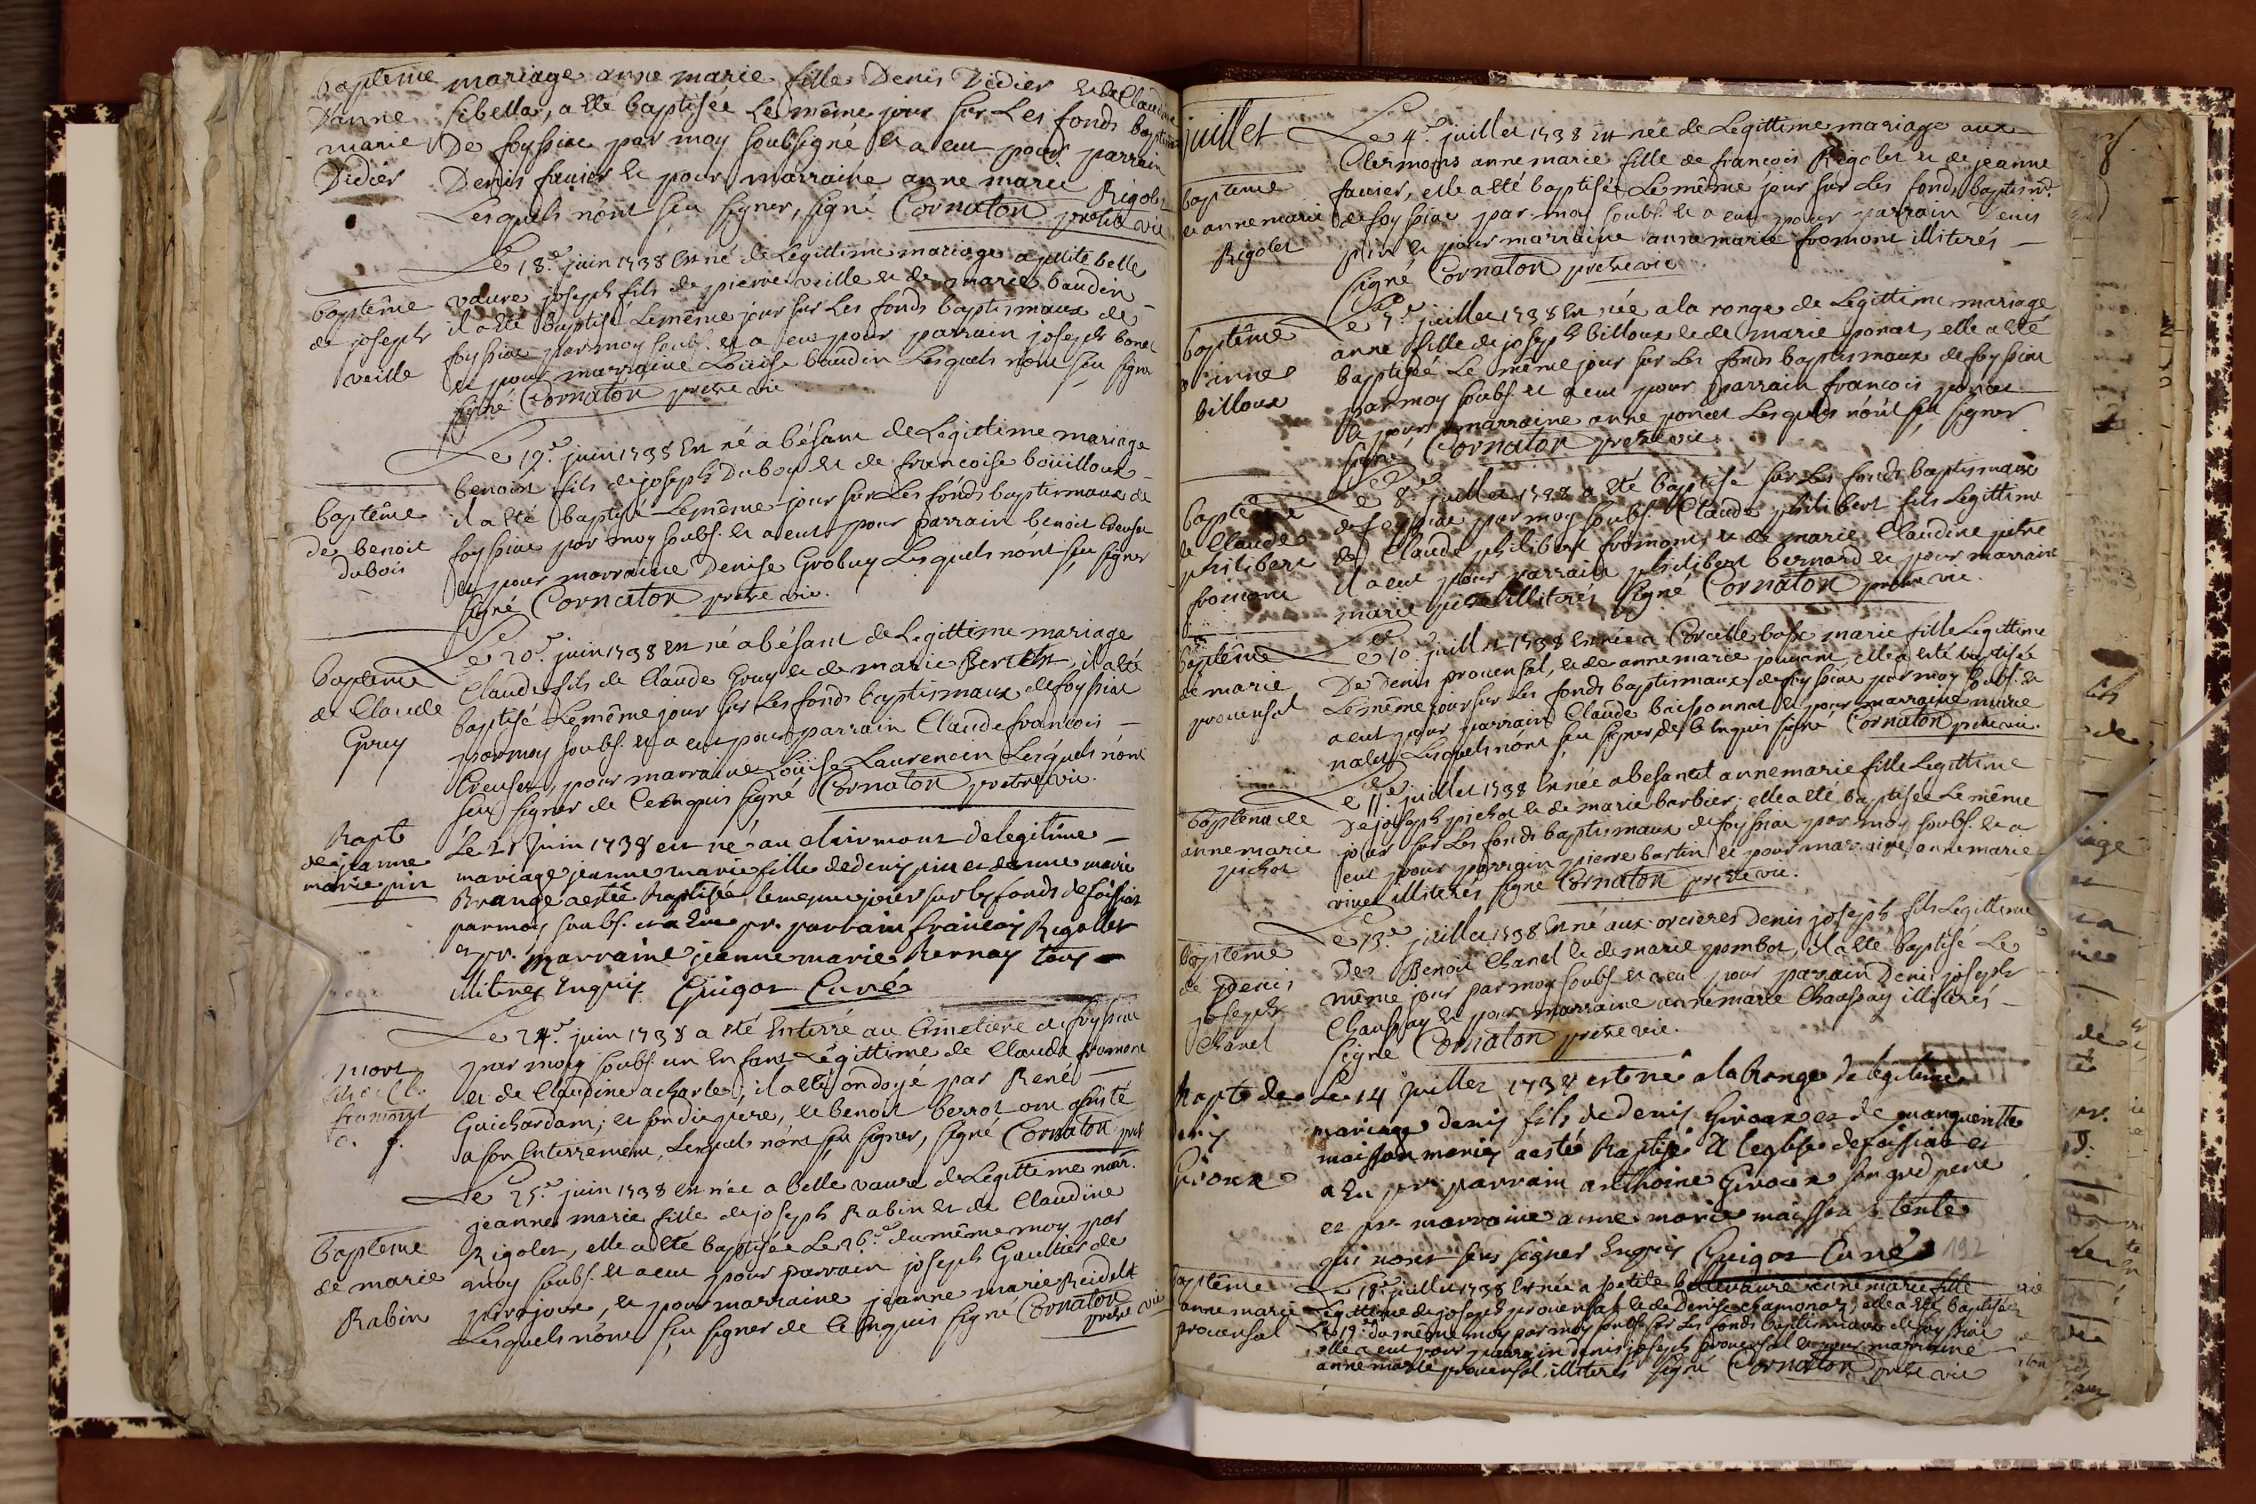 baptême
D'anne
marie
Didier
mariage anne marie fille Denis Didier et de Claudine
Sibella, a été baptisée Le même jour sur Les fonds baptismaux
De foyssiat par moy soubsigné et a eut pour parrain
Denis fauier et pour marraine anne marie Rigolet
Lesquels n'ont sçu signer, signé Cornaton pretre vic
baptême
de joseph
veille
Le 18e juin 1738 est né de Legittime mariage a petite belle
vaure joseph fils de pierre veille et de marie baudin
il a été baptisé Le même jour sur Les fonds baptismaux de
foyssiat par moy soubs. et a eut pour parrain joseph bonet
et pour marraine Loüise baudin Lesquels n'ont sçu signer
signé Cornaton pretre vic
baptême
de benoit
dubois
Le 19e juin 1738 est né a bésant de Legittime mariage
benoit fils de joseph Dubois et de francoise boüilloux
il a été baptisé Le même jour sur Les fonds baptismaux de
foyssiat par moy soubs. et a eut pour parrain benoit Creuset
et pour marraine Denise Grobuy Lesquels n'ont sçu signer
signé Cornaton pretre vic.
baptême
de Claude
Gruy
Le 20e juin 1738 est né a bésant de Legittime mariage
Claude fils de Claude Gruy et de marie Berthet, il a été
baptisé Le même jour sur Les fonds baptismaux de foyssiat
par moy soubs. et a eut pour parrain Claude francois
Creuset, pour marraine Loüise Laurencin Lesquels n'ont
sçu signer de Ce enquis signé Cornaton pretre vic.
Bapt
de jeanne
marie pin
Le 21 juin 1738 est né au clairmont de legitime
mariage jeanne marie fille de denis pin et danne marie
Brange a esté Baptisée le mesme jour sur les fonds de foissiat
par moy soubs. et a Eue pr. parrain francois Rigollet
et pr. marraine jeanne marie Bernay tous
illiteres Enquis Guigot Curé
mort
fils de Cl.
fromont
Le 24e juin 1738 a été Enterré au Cimetiere de foyssiat
par moy soubs. un Enfant Légittime de Claude fromont
et de Claudine acharles, il a été ondoyé par René
Guichardam; et son dit père, et benoit berrot ont assisté
a son Enterrement, Lesquels n'ont sçu signer, signé Cornaton pret
baptême
de marie
Rabin
Le 25e juin 1738 est née a belle vaure de Legittime mar.
jeanne marie fille de joseph Rabin et de Claudine
Rigolet, elle a été baptisée Le 26e du même moy par
moy soubs. et a eut pour parrain joseph Gaultier de
pirajoux, et pour marraine jeanne marie Reidelet
Lesquels n'ont sçu signer de Ce enquis signé Cornaton
pretre vic
juillet
baptême
d'anne marie
Rigolet
Le 4e juillet 1738 est née de Legittime mariage aux
Clermonts anne marie fille de francois Rigolet et de jeanne
fauier, elle a été baptisée Le même jour sur Les fonds baptism.
de foyssiat par moy soubs. et a eut pour parrain Denis
pin et pour marraine anne marie fromont illiterés
signé Cornaton pretre vic
baptême
d'anne
billoux
Le 5e juillet 1738 est née a la ronge de Legittime mariage
anne fille de joseph billoux et de marie ponat, elle a été
baptisée Le même jour sur Les fonds baptismaux de foyssiat
par moy soubs. et a eut pour parrain francois ponat
et pour marraine anne poncet Lesquels n'ont sçu signer
signé Cornaton pretre vic.
baptême
de Claude
philibert
fromont
Le 8e juillet 1738 a été baptisé sur Les fonds baptismaux
de foyssiat par moy soubs. Claude philibert fils Legittime
de Claude philibert fromont, et de marie Claudine pitre
il a eut pour parrain philibert bernard et pour marraine
marie pitre illiterés signé Cornaton pretre vic.
baptême
de marie
prouensal
Le 10e juillet 1738 est née a Corcelle basse marie fille Legittime
De Denis prouensal, et de anne marie jouuant, elle a été baptisée
Le même jour sur Les fonds baptismaux de foyssiat par moy soubs. et
a eut pour parrain Claude baissonnat et pour marraine marie
nalet Lesquels n'ont sçu signer, de Ce enquis signé Cornaton pretre vic.
baptême de
anne marie
pichot
Le 11e juillet 1738 est née a besantet anne marie fille Legittime
De joseph pichot et de marie barbier, elle a été baptisée Le même
jour sur Les fonds baptismaux de foyssiat par moy soubs. et a
eut pour parrain pierre bastin et pour marraine anne marie
vinet illiterés signé Cornaton pretre vic.
baptême
de denis
joseph
Chanel
Le 13e juillet 1738 est né aux orcieres Denis joseph fils Legittime
De Benoit Chanel et de marie pombot, il a été baptisé Le
même jour par moy soubs. et a eut pour parrain Denis joseph
Chaussay et pour marraine anne marie Chaussay illiterés
signé Cornaton pretre vic.
Bapt de
denis
Giroux
Le 14 juillet 1738 est né a la Ronge de legitime
mariage denis fils de denis Giroux et de marguerite
maisson mariés a esté Baptisé a l'eglise de foissiat et
a Eu pr. parrain anthoine Giroux son grd pere
et pr. marraine anne marie maisson sa tente
qui n'ont sçu signer Enquis Guigot Curé
192
baptême
anne marie
prouensal
Le 18e juillet 1738 est née a petite bellevaure anne marie fille
Legittime de joseph prouensal et de Denise chamonat, elle a été baptisée
Le 19e du même moy par moy soubs. sur Les fonds baptismaux de foyssiat
elle a eut pour parrain denis joseph prouensal et pour marraine
anne marie prouensal illiterés signé Cornaton pretre vic